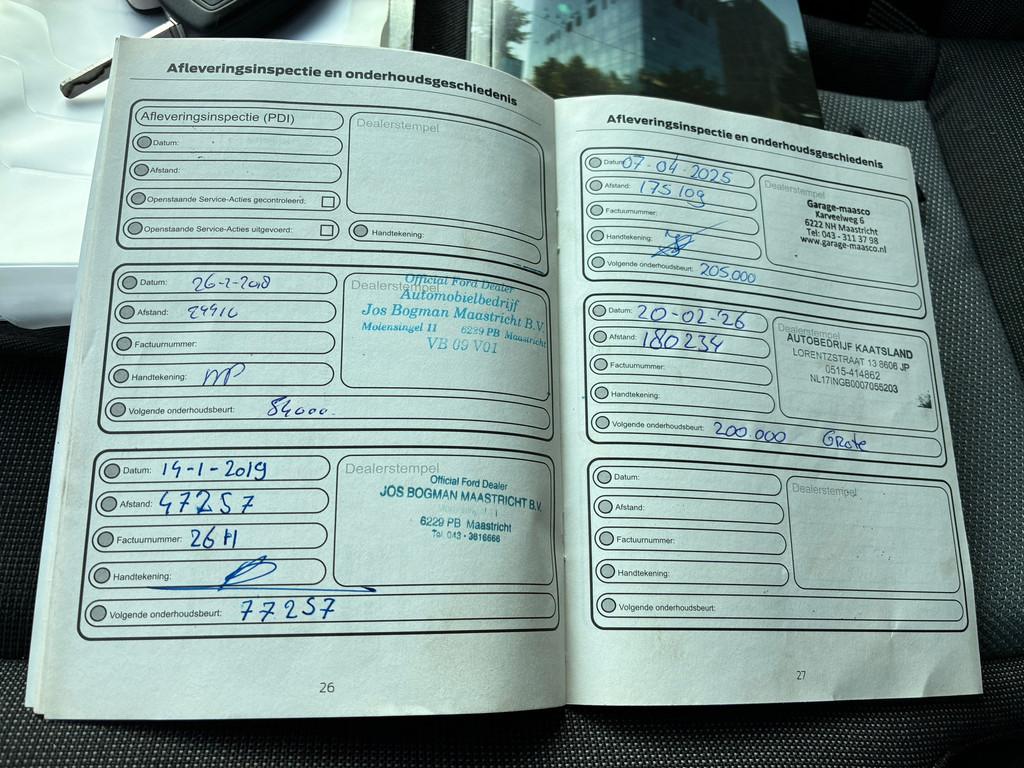 Afleveringsinspectie en onderhoudsgeschiedenis
Afleveringsinspectie (PDI)
Datum:
Afstand:
Openstaande Service-Acties gecontroleerd:
Openstaande Service-Acties uitgevoerd:
Dealerstempel
Handtekening:
Datum: 26-2-2018
Afstand:
Factuurnummer:
Handtekening:
Volgende onderhoudsbeurt: 54000.
Dealerstempel
Official Ford Dealer
Automobielbedrijf
Jos Bogman Maastricht B.V.
Molensingel 11 6229 PB Maastricht
VB 09 V01
Datum: 14-1-2019
Afstand: 47257
Factuurnummer: 26H
Handtekening:
Volgende onderhoudsbeurt: 77257
Dealerstempel
Official Ford Dealer
JOS BOGMAN MAASTRICHT B.V.
6229 PB Maastricht
Tel. 043 - 3816666
26
Afleveringsinspectie en onderhoudsgeschiedenis
Datum: 07-04-2025
Afstand: 175109
Factuurnummer:
Handtekening:
Volgende onderhoudsbeurt: 205.000
Dealerstempel
Garage-maasco
Karveelweg 6
6222 NH Maastricht
Tel: 043 - 311 37 98
www.garage-maasco.nl
Datum: 20-02-'26
Afstand: 180234
Factuurnummer:
Handtekening:
Volgende onderhoudsbeurt: 200.000 Grote
Dealerstempel
AUTOBEDRIJF KAATSLAND
LORENTZSTRAAT 13 8606 JP
0515-414862
NL17INGB0007055203
Datum:
Afstand:
Factuurnummer:
Handtekening:
Volgende onderhoudsbeurt:
Dealerstempel
27